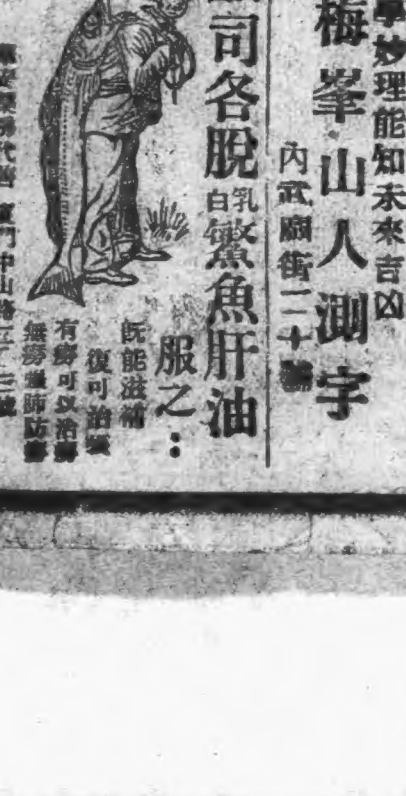 學妙理能知未來吉凶
梅峯山人測字
內武廟街二十號
司各脫
乳白鰵魚肝油
服之：
既能滋補
復可治嗽
有癆可以治癆
無癆並防癆
廈門中山路